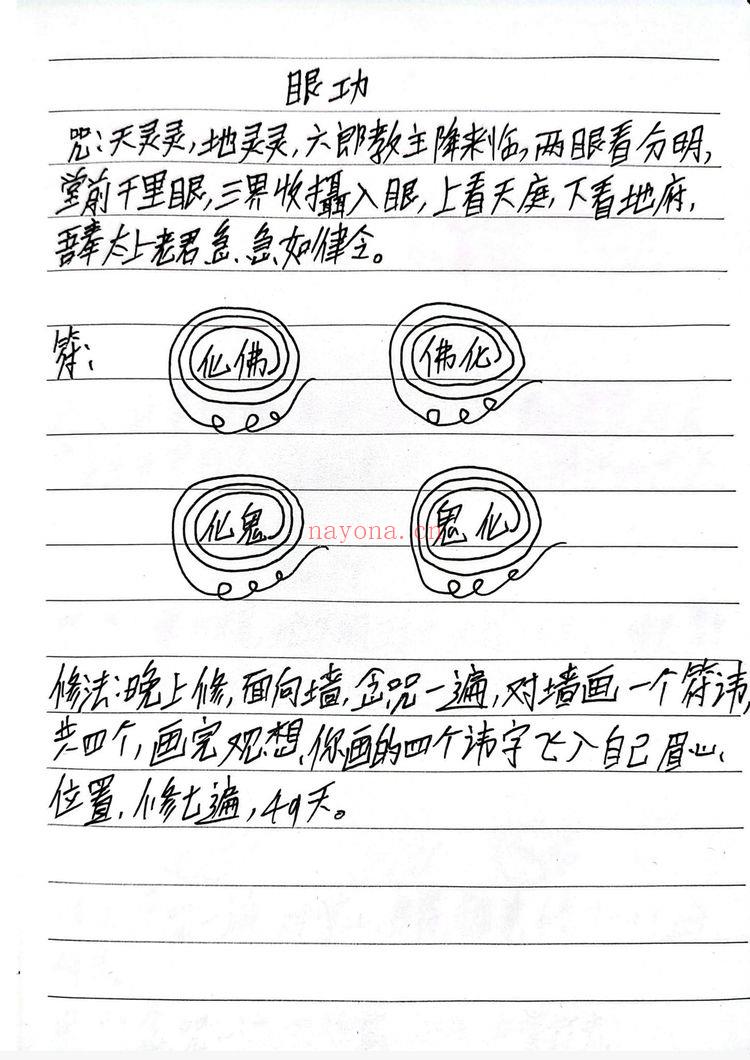 眼功
咒:天灵灵,地灵灵,六郎教主降来临,两眼看分明,
堂前千里眼,三界收攝入眼,上看天庭,下看地府,
吾奉太上老君急急如律令。
符:
化佛 佛化
化鬼 鬼化
nayona.cn
修法:晚上修,面向墙,念咒一遍,对墙画一个符讳,
共四个,画完观想,你画的四个讳字飞入自己眉心
位置,修七遍,49天。